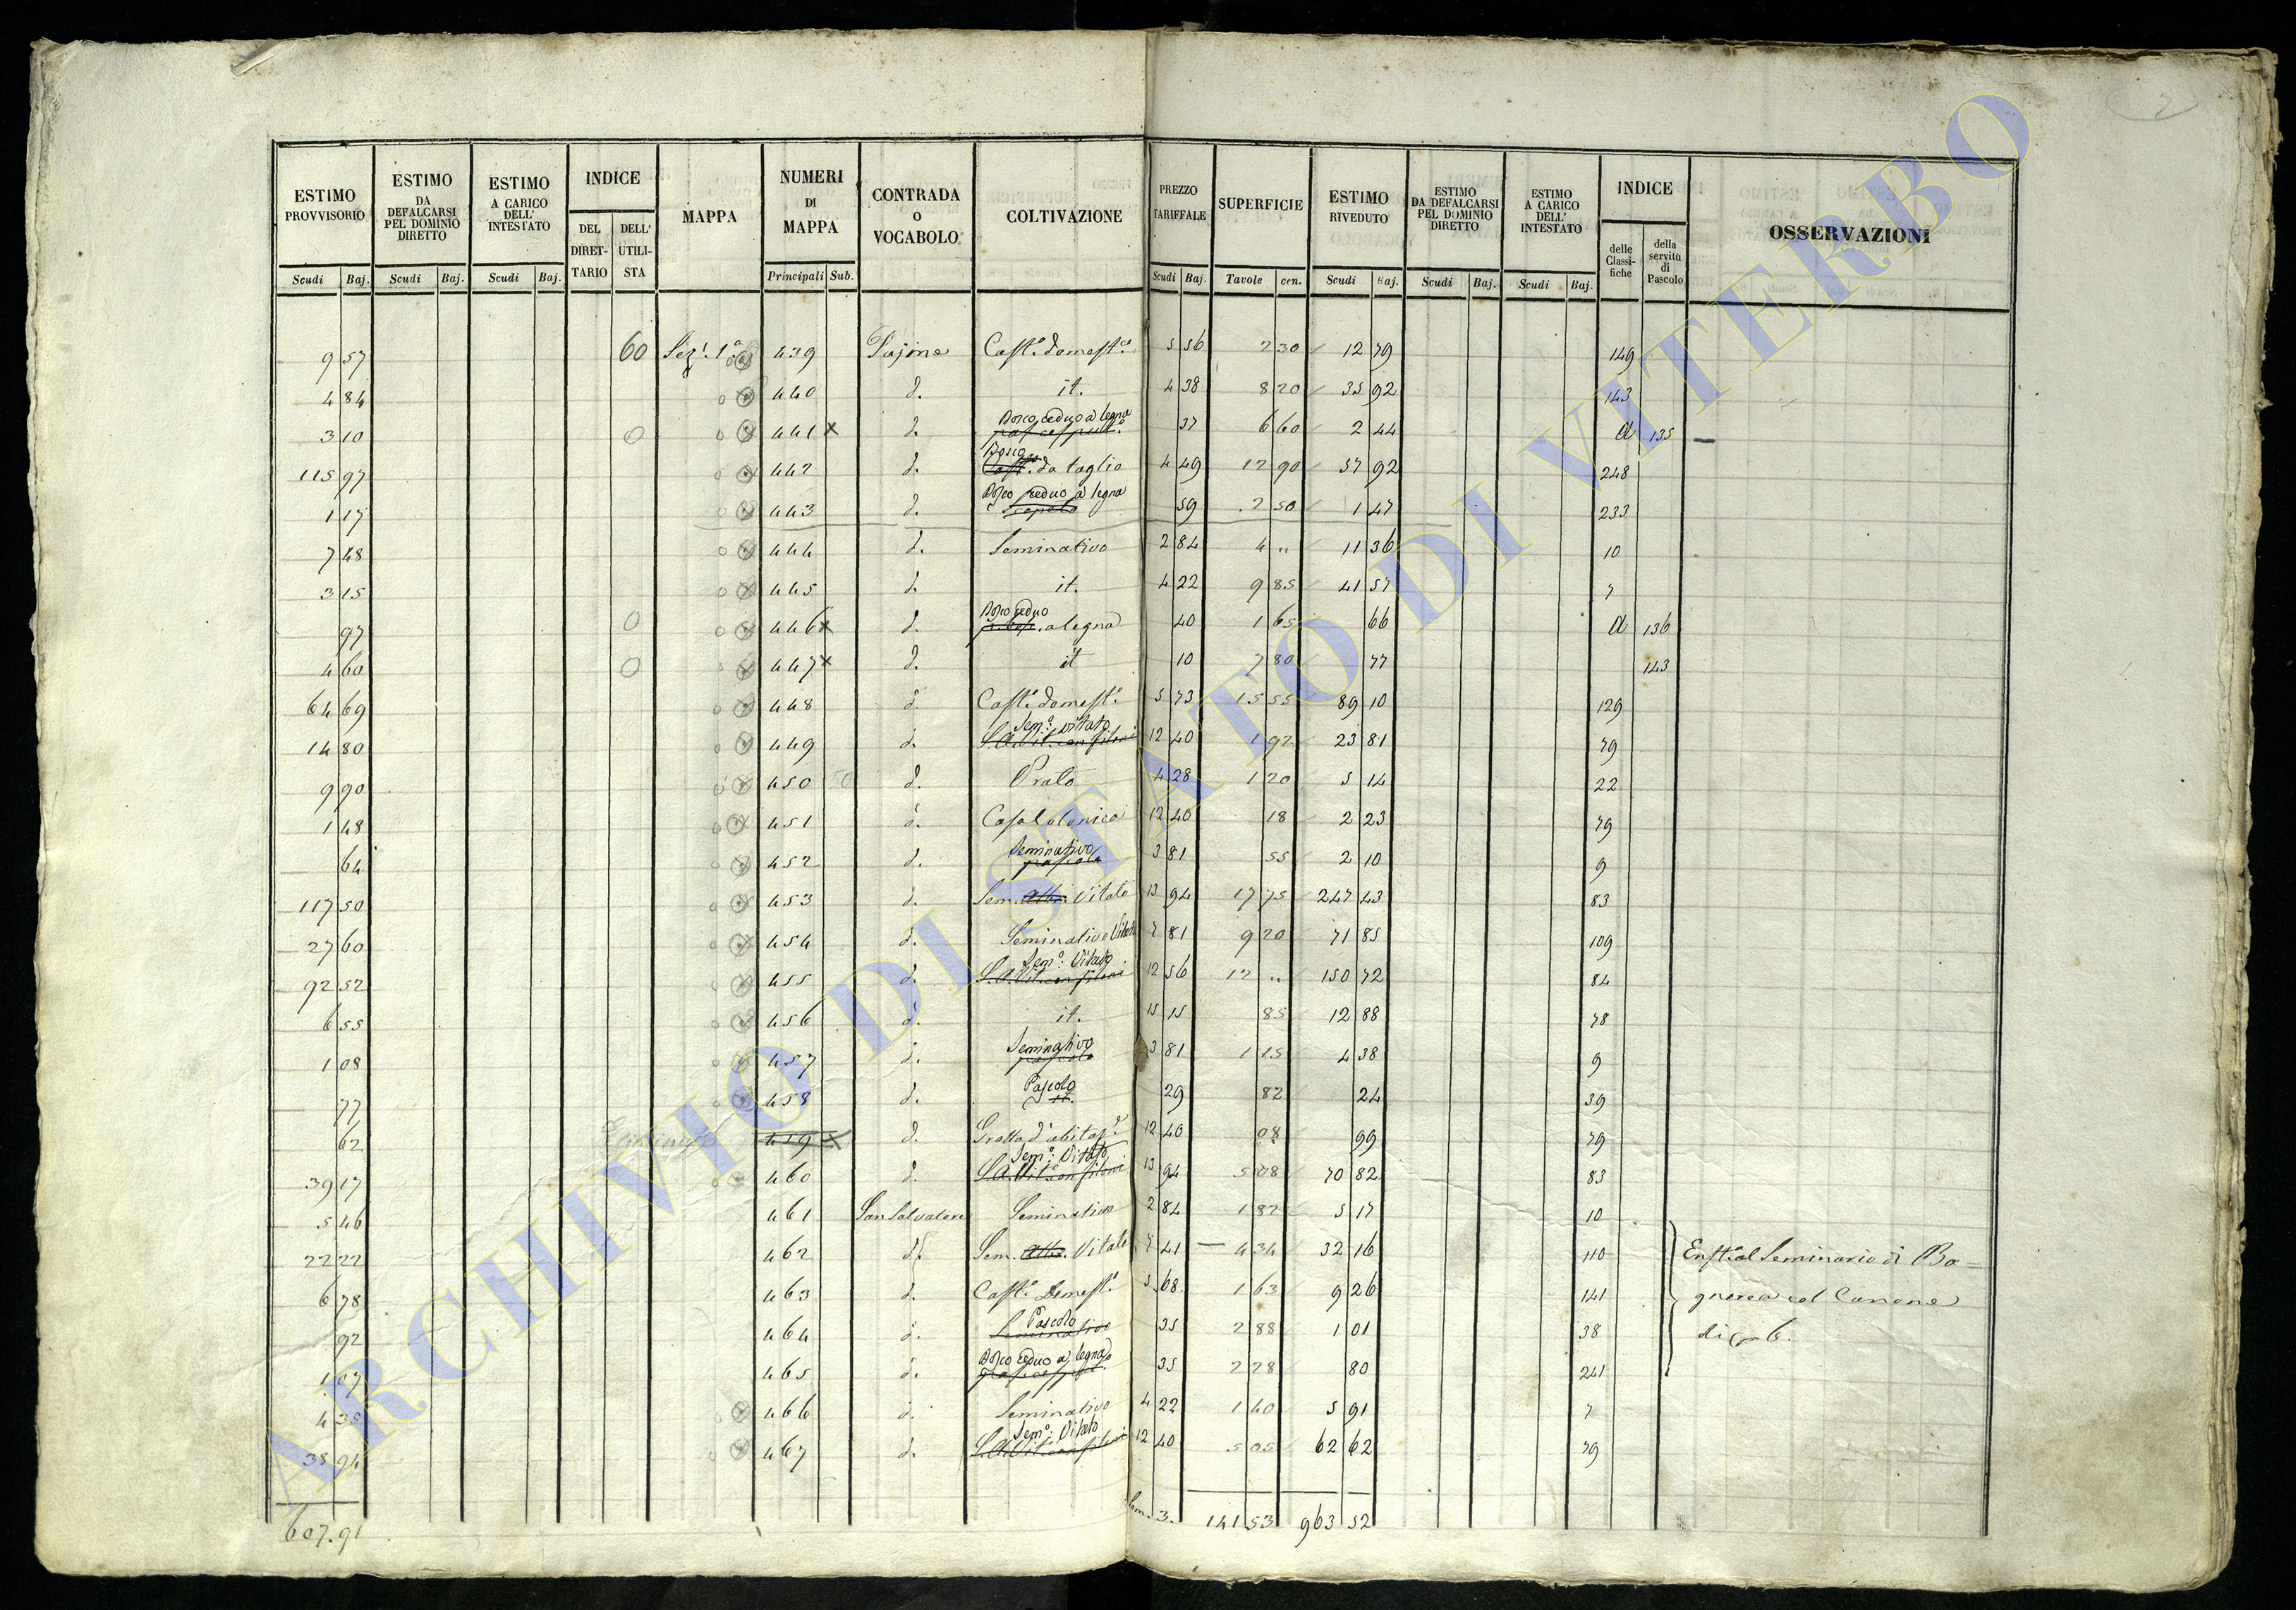 2
ESTIMO PROVVISORIO | ESTIMO DA DEFALCARSI PEL DOMINIO DIRETTO | ESTIMO A CARICO DELL' INTESTATO | INDICE | MAPPA | NUMERI DI MAPPA | CONTRADA O VOCABOLO | COLTIVAZIONE | PREZZO TARIFFALE | SUPERFICIE | ESTIMO RIVEDUTO | ESTIMO DA DEFALCARSI PEL DOMINIO DIRETTO | ESTIMO A CARICO DELL' INTESTATO | INDICE | OSSERVAZIONI
DEL DIRETTARIO | DELL' UTILISTA | delle Classifiche | della servitù di Pascolo
Scudi | Baj. | Scudi | Baj. | Scudi | Baj. | Principali | Sub. | Scudi | Baj. | Tavole | cen. | Scudi | Baj. | Scudi | Baj. | Scudi | Baj.
9 57 | 60 | Sez. 1.a | 439 | Pajine | Cast.o domest.o | 5 56 | 2 30 | 12 79 | 149
4 84 | 440 | d. | it. | 4 38 | 8 20 | 35 92 | 143
3 10 | 0 | 441 x | d. | Bosco ceduo a legna | 37 | 6 60 | 2 44 | a | 135 —
115 97 | 442 | d. | Bosco da taglio | 4 49 | 12 90 | 57 92 | 248
1 17 | 443 | d. | Bosco ceduo a legna | 59 | 2 50 | 1 47 | 233
7 48 | 444 | d. | Seminativo | 2 84 | 4 " | 11 36 | 10
3 15 | 445 | d. | it. | 4 22 | 9 85 | 41 57 | 7
97 | 0 | 446 x | d. | Bosco ceduo a legna | 40 | 1 65 | 66 | a | 136
4 60 | 0 | 447 x | d. | it | 10 | 7 80 | 77 | 143
64 69 | 448 | d. | Cast.o domest.o | 5 73 | 15 55 | 89 10 | 129
14 80 | 449 | d. | Sem.o Vitato | 12 40 | 1 92 | 23 81 | 79
9 90 | 450 | 50 | d. | Prato | 4 28 | 1 20 | 5 14 | 22
1 48 | 451 | d. | Casa Colonica | 12 40 | 18 | 2 23 | 79
64 | 452 | d. | Seminativo | 3 81 | 55 | 2 10 | 9
117 50 | 453 | d. | Sem. Vitato | 13 94 | 17 75 | 247 43 | 83
27 60 | 454 | d. | Seminativo Vitato | 7 81 | 9 20 | 71 85 | 109
92 52 | 455 | d. | Sem.o Vitato | 12 56 | 12 " | 150 72 | 84
6 55 | 456 | d. | it. | 15 15 | 85 | 12 88 | 78
1 08 | 457 | d. | Seminativo | 3 81 | 1 15 | 4 38 | 9
77 | 458 | d. | Pascolo | 29 | 82 | 24 | 39
62 | 459 x | d. | Grotta d'abitaz.e | 12 40 | 08 | 99 | 79
39 17 | 460 | d. | Sem.o Vitato | 13 94 | 5 08 | 70 82 | 83
5 46 | 461 | San Salvatore | Seminativo | 2 84 | 1 82 | 5 17 | 10
22 22 | 462 | d. | Sem. Vitato | 7 41 | 4 34 | 32 16 | 110 | Enft.o al Seminario di Ba=
6 78 | 463 | d. | Cast.o Domest.o | 5 68 | 1 63 | 9 26 | 141 | gnorea col Canone
92 | 464 | d. | Pascolo | 35 | 2 88 | 1 01 | 38 | di 6.
1 07 | 465 | d. | Bosco ceduo a legna | 35 | 2 28 | 80 | 241
4 35 | 466 | d. | Seminativo | 4 22 | 1 40 | 5 91 | 7
38 94 | 467 | d. | Sem.o Vitato | 12 40 | 5 05 | 62 62 | 79
607.91 | 3. | 141 53 | 963 52
ARCHIVIO DI STATO DI VITERBO